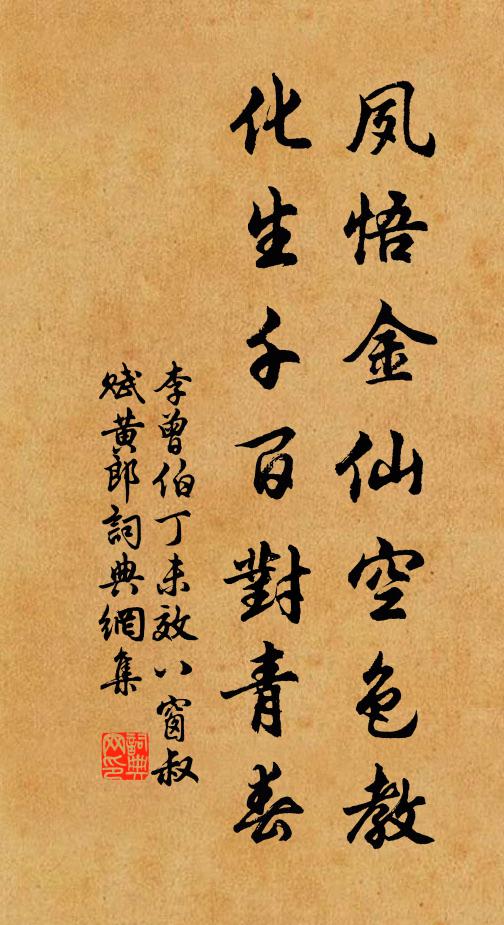 夙悟金仙空色教
化生千百對青春
李曾伯丁未效八窗叔
賦黃郎詞典網集
詞典網印